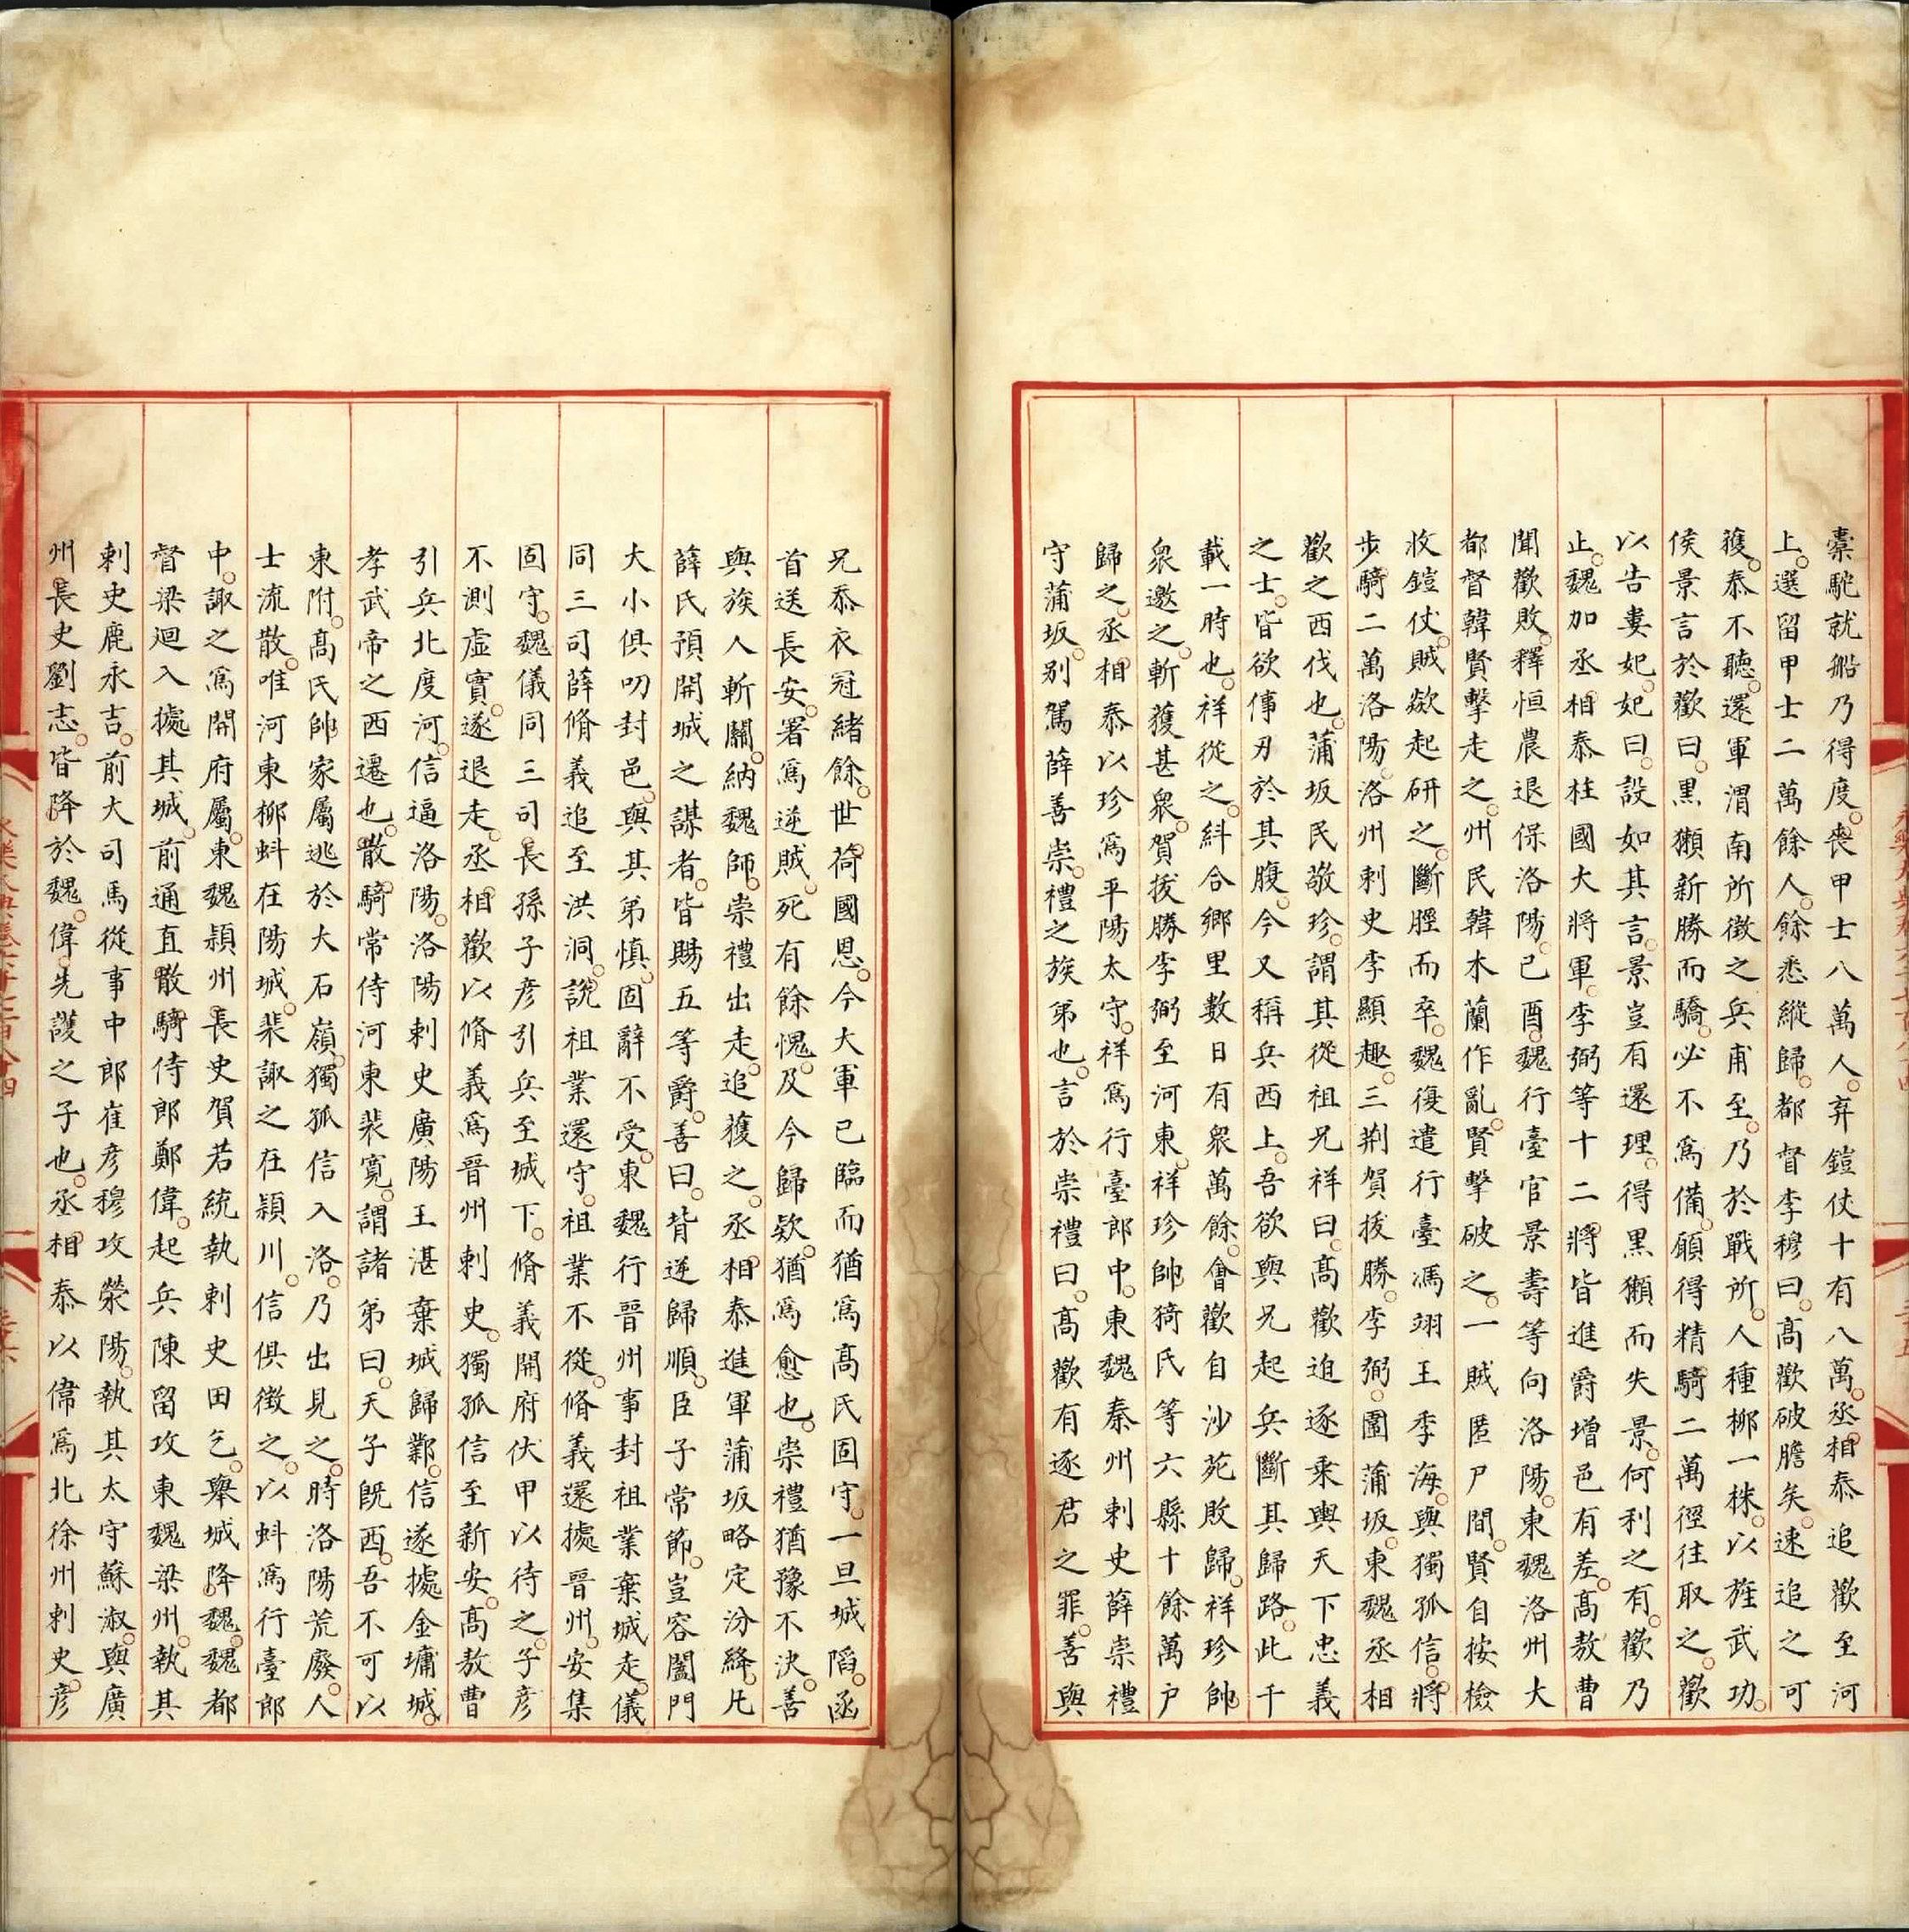 橐駝就船乃得度。喪甲士八萬人。弃鎧仗十有八萬。丞相泰追歡至河
上。選留甲士二萬餘人。餘悉縱歸。都督李穆曰。高歡破膽矣。速追之可
獲。泰不聽。還軍渭南所徵之兵甫至。乃於戰所。人種柳一株。以旌武功。
侯景言於歡曰。黑獺新勝而驕。必不爲備。願得精騎二萬徑往取之。歡
以告婁妃。妃曰。設如其言。景豈有還理。得黑獺而失景。何利之有。歡乃
止。魏加丞相泰柱國大將軍。李弼等十二將皆進爵增邑有差。高敖曹
聞歡敗。釋恒農退保洛陽。己酉。魏行臺官景壽等向洛陽。東魏洛州大
都督韓賢擊走之。州民韓木蘭作亂。賢擊破之。一賊匿尸間。賢自按檢
收鎧仗。賊欻起斫之。斷脛而卒。魏復遣行臺馮翊王季海。與獨孤信。將
步騎二萬洛陽。洛州刺史李顯趣。三荆賀拔勝。李弼。圍蒲坂。東魏丞相
歡之西伐也。蒲坂民敬珍。謂其從祖兄祥曰。高歡迫逐乘輿天下忠義
之士。皆欲倳刃於其腹。今又稱兵西上。吾欲與兄起兵斷其歸路。此千
載一時也。祥從之。糾合鄉里數日有衆萬餘。會歡自沙苑敗歸。祥珍帥
衆邀之。斬獲甚衆。賀拔勝李弼至河東。祥珍帥猗氏等六縣十餘萬戶
歸之。丞相泰以珍爲平陽太守。祥爲行臺郎中。東魏秦州刺史薛崇禮
守蒲坂。别駕薛善崇。禮之族弟也。言於崇禮曰。高歡有逐君之罪。善與
兄忝衣冠緒餘。世荷國恩。今大軍已臨而猶爲高氏固守。一旦城陷。函
首送長安。署爲逆賊。死有餘愧。及今歸款。猶爲愈也。崇禮猶豫不決。善
與族人斬關。納魏師。崇禮出走。追獲之。丞相泰進軍蒲坂略定汾絳。凡
薛氏預開城之謀者。皆賜五等爵。善曰。背逆歸順。臣子常節。豈容闔門
大小俱叨封邑。與其弟慎。固辭不受。東魏行晉州事封祖業棄城走。儀
同三司薛脩義追至洪洞。說祖業還守。祖業不從。脩義還據晉州。安集
固守。魏儀同三司長孫子彥引兵至城下。脩義開府伏甲以待之。子彥
不測虛實。遂退走。丞相歡以脩義爲晉州刺史。獨孤信至新安。高敖曹
引兵北度河。信逼洛陽。洛陽刺史廣陽王湛棄城歸鄴。信遂據金墉城。
孝武帝之西遷也。散騎常侍河東裴寬。謂諸弟曰。天子旣西。吾不可以
東附。高氏帥家屬逃於大石嶺。獨孤信入洛。乃出見之。時洛陽荒廢。人
士流散。唯河東柳蚪在陽城。裴諏之在潁川。信俱徵之。以蚪爲行臺郎
中。諏之爲開府屬。東魏潁州長史賀若統執刺史田乞。舉城降。魏。魏都
督梁迴入據其城。前通直散騎侍郎鄭偉。起兵陳留攻東魏梁州。執其
刺史鹿永吉。前大司馬從事中郎崔彥穆攻滎陽。執其太守蘇淑。與廣
州長史劉志。皆降於魏。偉。先護之子也。丞相泰以偉爲北徐州刺史。彥